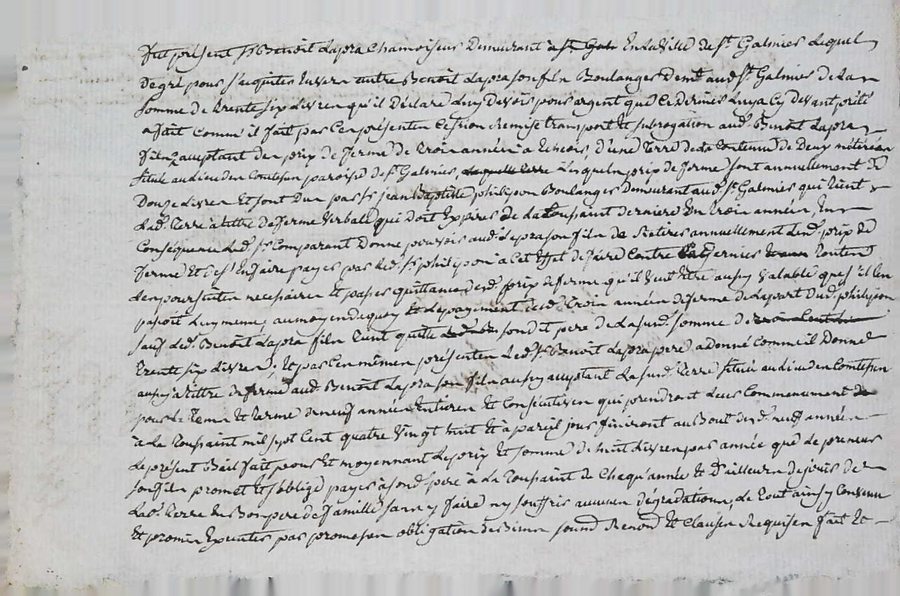 fut présent sr Benoit Lapra chamoiseur demeurant a st Gal en la ville de st Galmier lequel
de gré pour s'acquiter envers autre Benoit Lapra son fils Boulanger demt aud. st Galmier de la
somme de trente six livres qu'il déclare luy devoir pour argent que ce dernier luy a cy devant prété
a fait comme il fait par ces présentes cession remise transport et subrogation aud. Benoit Lapra
fils acceptant des prix de ferme de trois années a echeoir, d'une terre de contenue de deux méterées
située au lieu des Combes paroisse de st Galmier, laquelle terre lesquels prix de ferme sont annuellement de
Douze livres et sont dus par sr jean Baptiste philipon Boulanger demeurant aud. st Galmier qui tient
lad. terre a titre de ferme verbale qui doit expirer de la toussaint derniere en trois années, en
conséquence led. sr comparant donne pouvoir aud. Lapra son fils de retirer annuellement led. prix de
ferme et s'en faire payer par led. sr philipon a cet effet de faire contre ce dernier toutes
les poursuites necessaires et passer quittance dud. prix de ferme qu'il veut être aussy valable que s'il les
passoit luy meme, au moyen de quoy et du payement desd. trois années de ferme de la part dud. philipon
sauf led. Benoit Lapra fils tient quitte sond. pere de lasusd. somme de
trente six livres; et par ces mêmes présentes led. sr Benoit Lapra pere a donné comme il donne
aussy a titre de ferme aud. Benoit Lapra son fils aussy acceptant lasusd. terre située au lieu des Combes
pour le tems et terme de neuf années entieres et consécutives qui prendront leur commencement
a la toussaint mil sept cent quatre vingt huit et a pareil jour finiront au bout desd. neuf années
le présent Bail fait pour et moyennant le prix et somme de huit livres par année que le preneur
promet et s'oblige payer a sond. pere a la toussaint de chaqu'année et d'ailleurs de jouir de
lad. terre en bon pere de famille sans y faire ny souffrir aucunes dégradations, de tout ainsy convenu
et promis executer par promesse obligation de biens soumd. Renond. et clauses Requises fait et